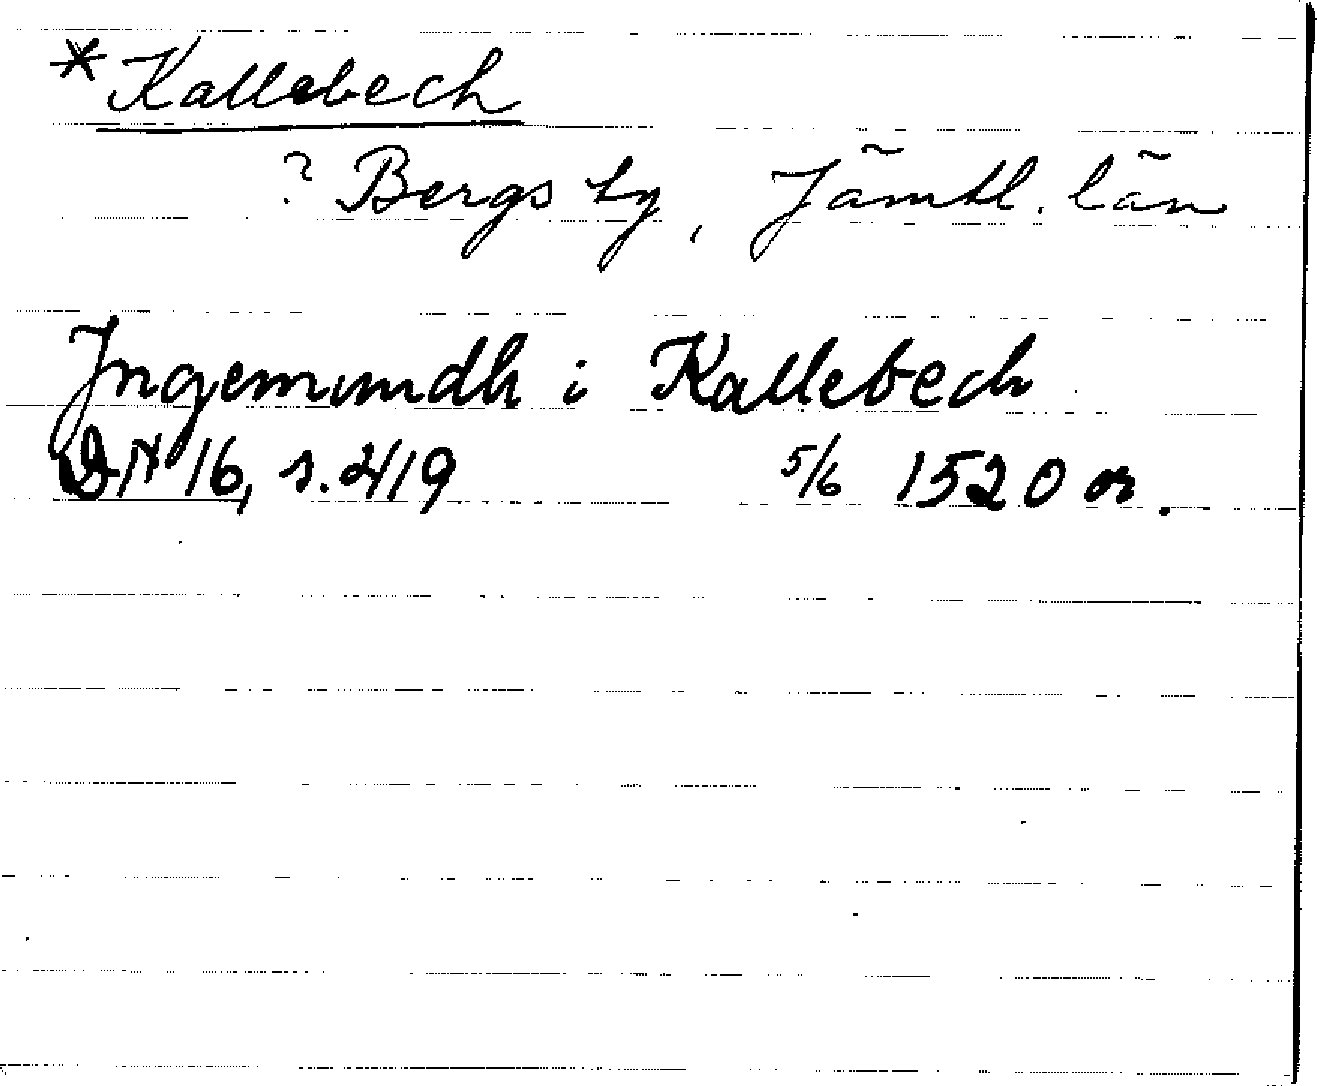 *Kallebech
? Bergs tg, Jämtl. län
Jngemundh i Kallebech
DN 16, s. 419 5/6 1520 or.